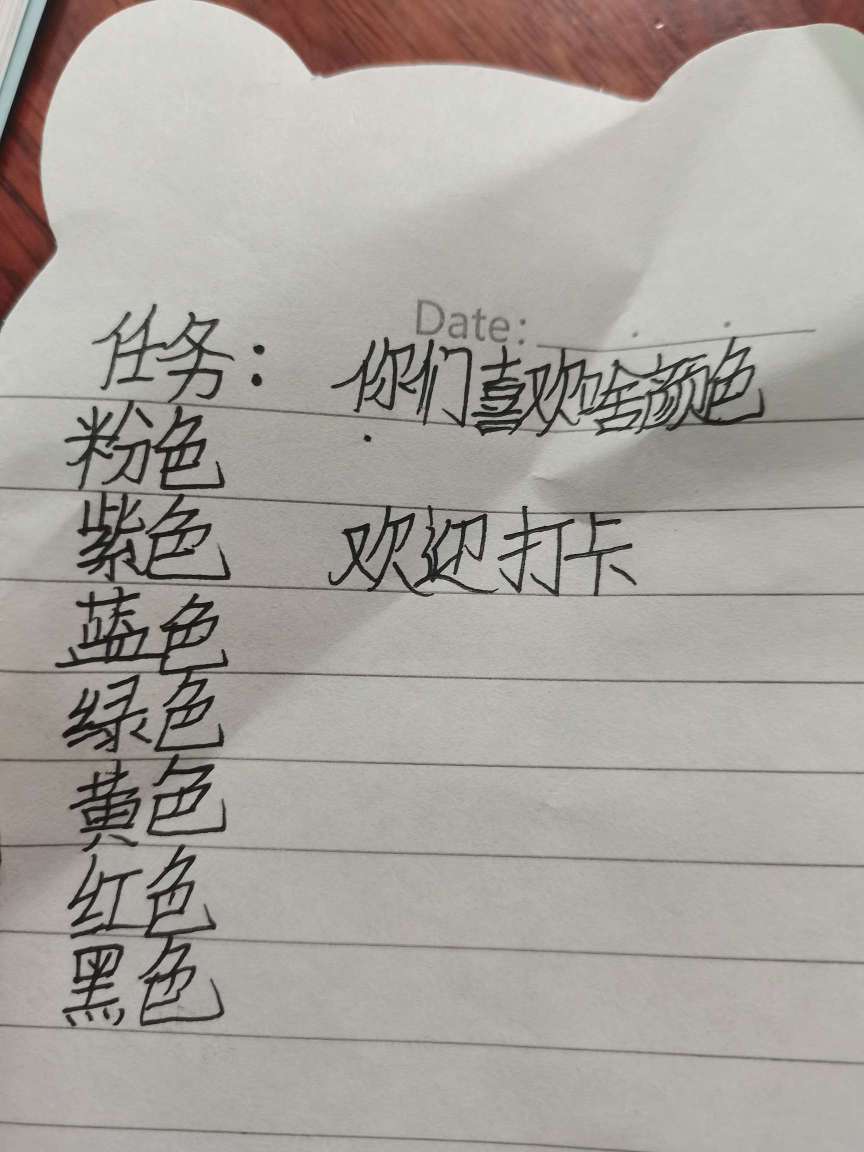 Date:
任务： 你们喜欢啥颜色
粉色
紫色 欢迎打卡
蓝色
绿色
黄色
红色
黑色